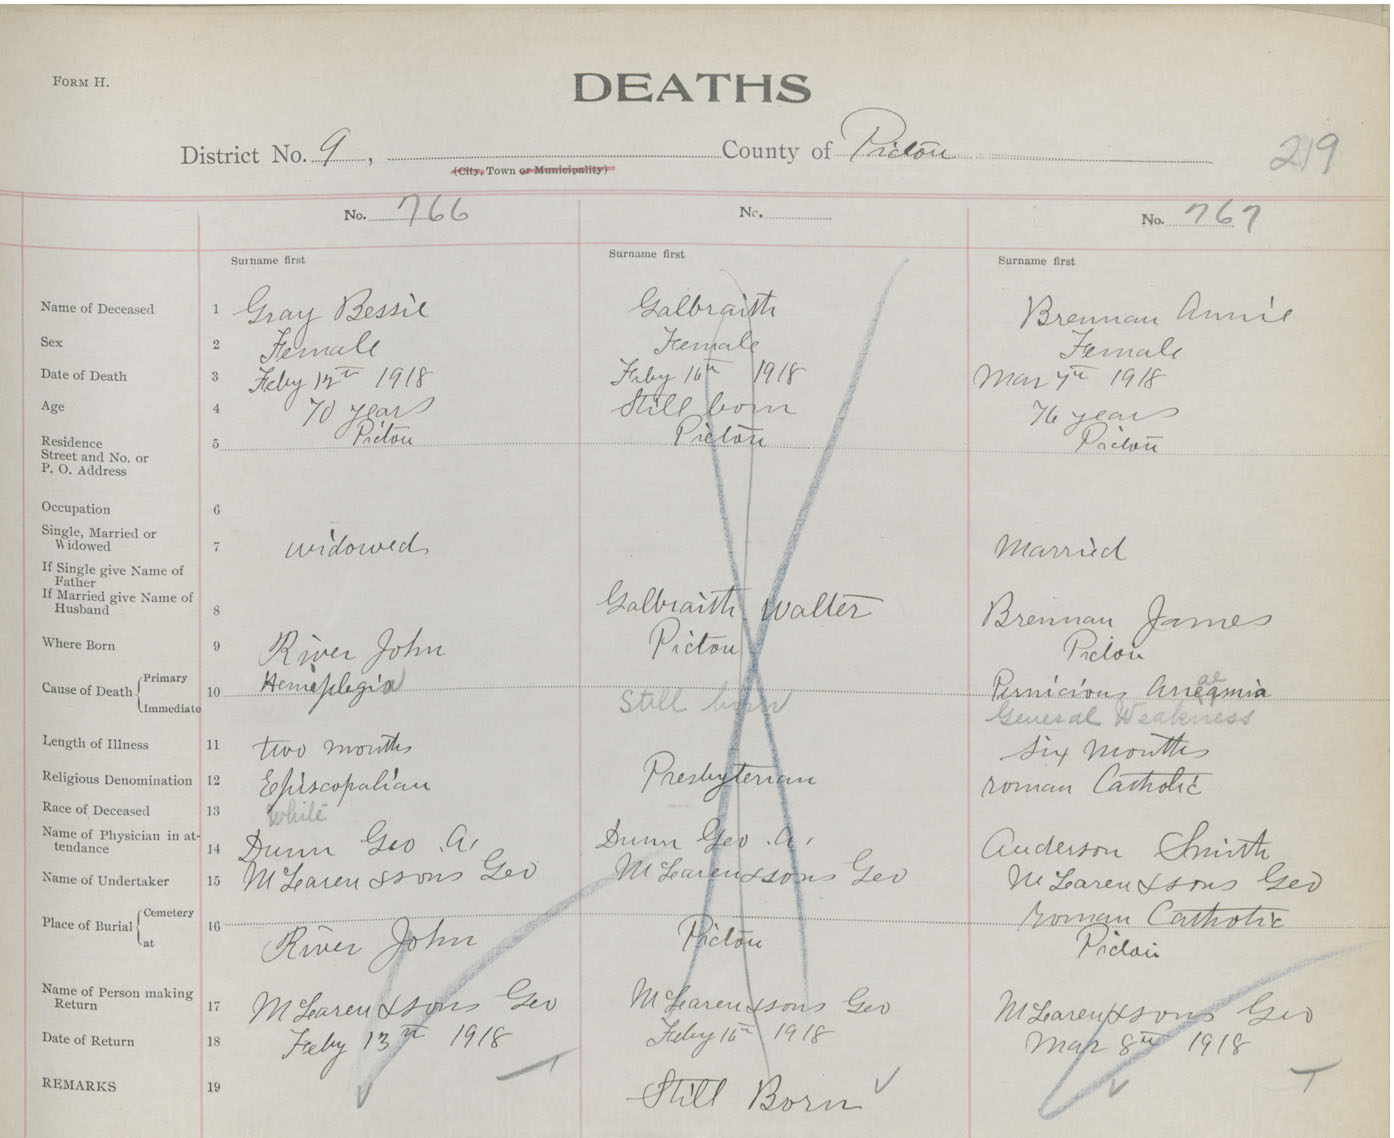 FORM H.
DEATHS
District No. 9, County of Pictou 219
(City, Town or Municipality)
No. 766 No. No. 767
Surname first Surname first Surname first
Name of Deceased 1 Gray Bessie Galbraith Brennan Annie
Sex 2 Female Female Female
Date of Death 3 Feby 12th 1918 Feby 16th 1918 Mar 7th 1918
Age 4 70 years Still born 76 years
Residence Street and No. or P. O. Address 5 Pictou Pictou Pictou
Occupation 6
Single, Married or Widowed 7 widowed Married
If Single give Name of Father
If Married give Name of Husband 8 Galbraith Walter Brennan James
Where Born 9 River John Pictou Pictou
Cause of Death Primary 10 Hemiplegia Still born Pernicious Anaemia
Immediate General Weakness
Length of Illness 11 two months six months
Religious Denomination 12 Episcopalian Presbyterian roman Catholic
Race of Deceased 13 White
Name of Physician in attendance 14 Dunn Geo. A. Dunn Geo. A. Anderson Smith
Name of Undertaker 15 McLaren & sons Geo McLaren & sons Geo McLaren & sons Geo
Place of Burial Cemetery 16 roman Catholic
at River John Pictou Pictou
Name of Person making Return 17 McLaren & sons Geo McLaren & sons Geo McLaren & sons Geo
Date of Return 18 Feby 13th 1918 Feby 16th 1918 Mar 8th 1918
REMARKS 19 Still Born